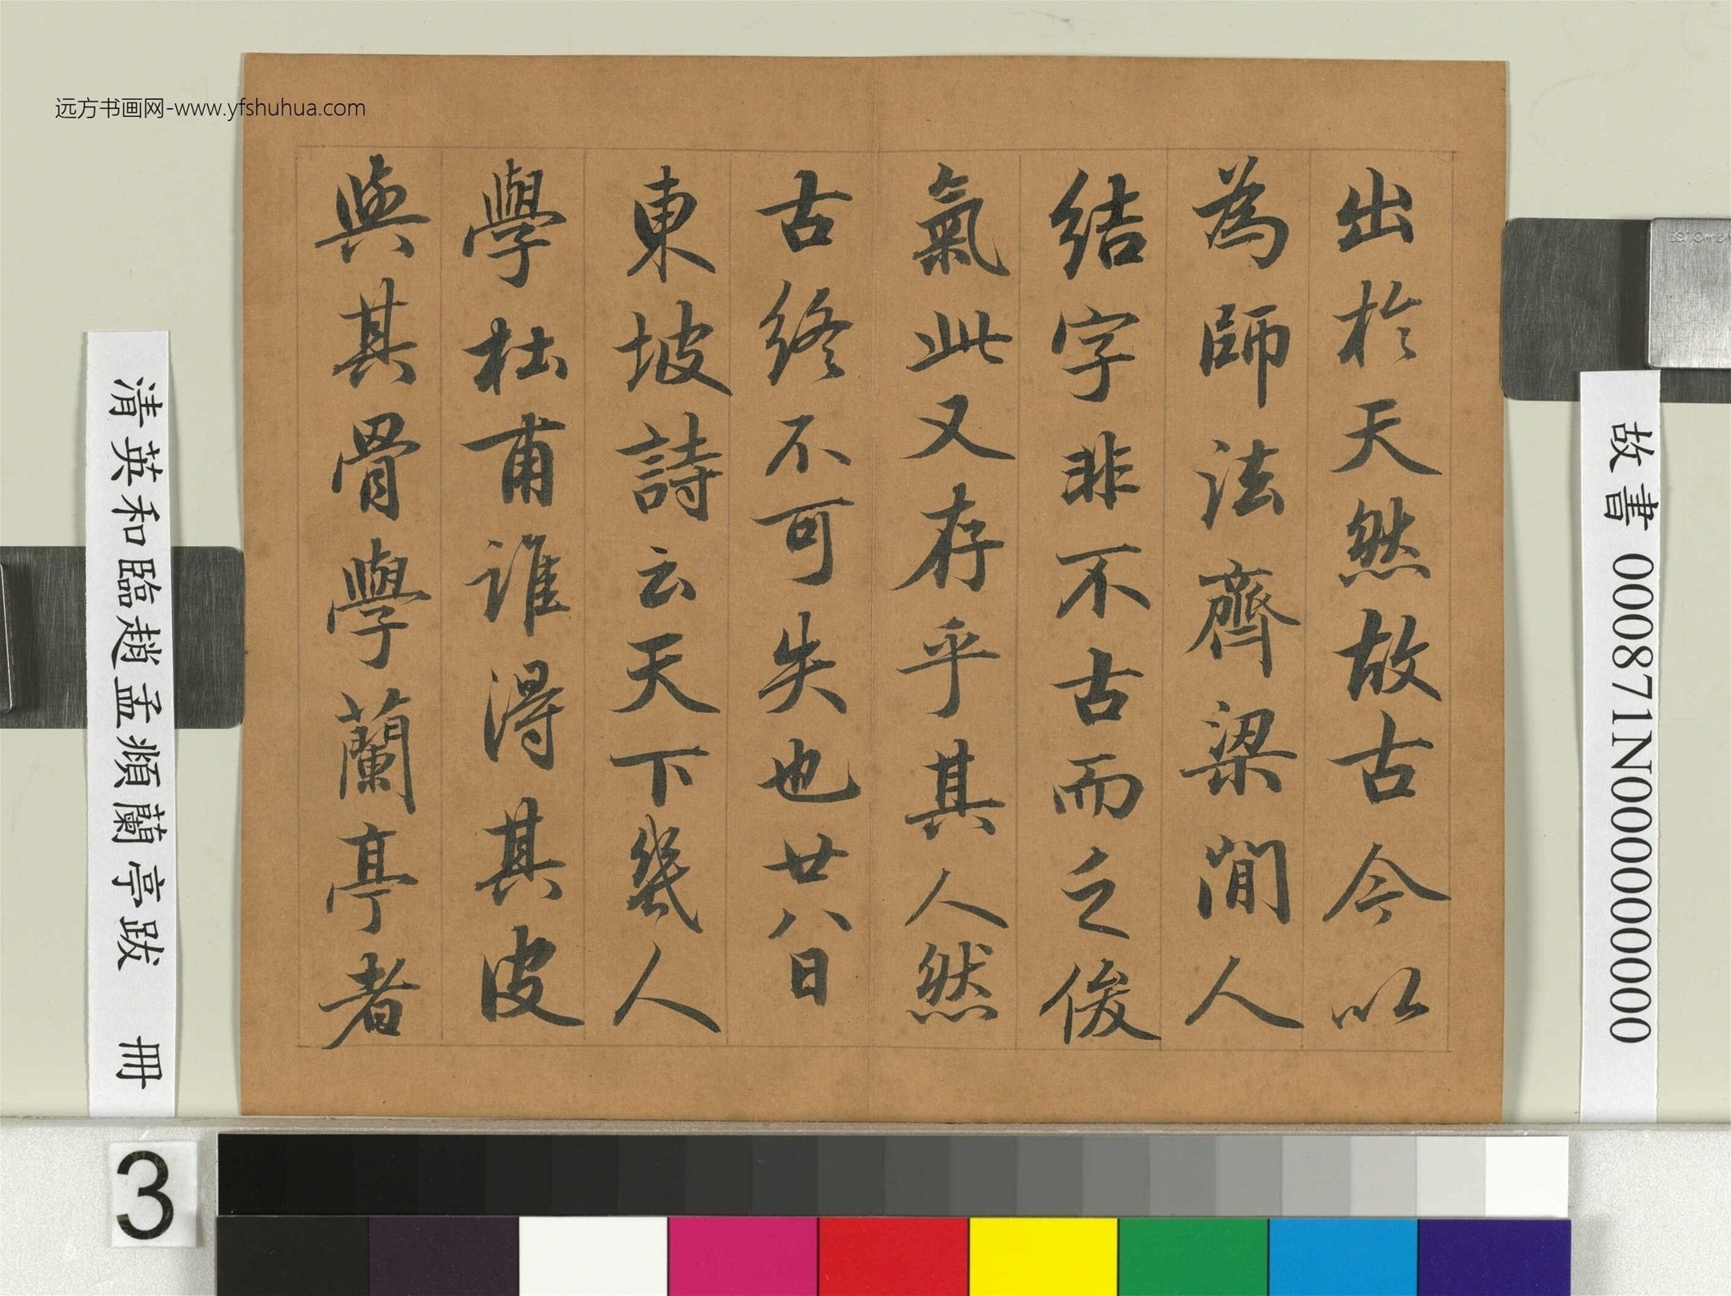 远方书画网-www.yfshuhua.com
出於天然故古今以
為師法齊梁間人
結字非不古而乏俊
氣此又存乎其人然
古終不可失也廿八日
東坡詩云天下幾人
學杜甫誰得其皮
與其骨學蘭亭者
清英和臨趙孟頫蘭亭跋 冊
故書 000871N000000000
3